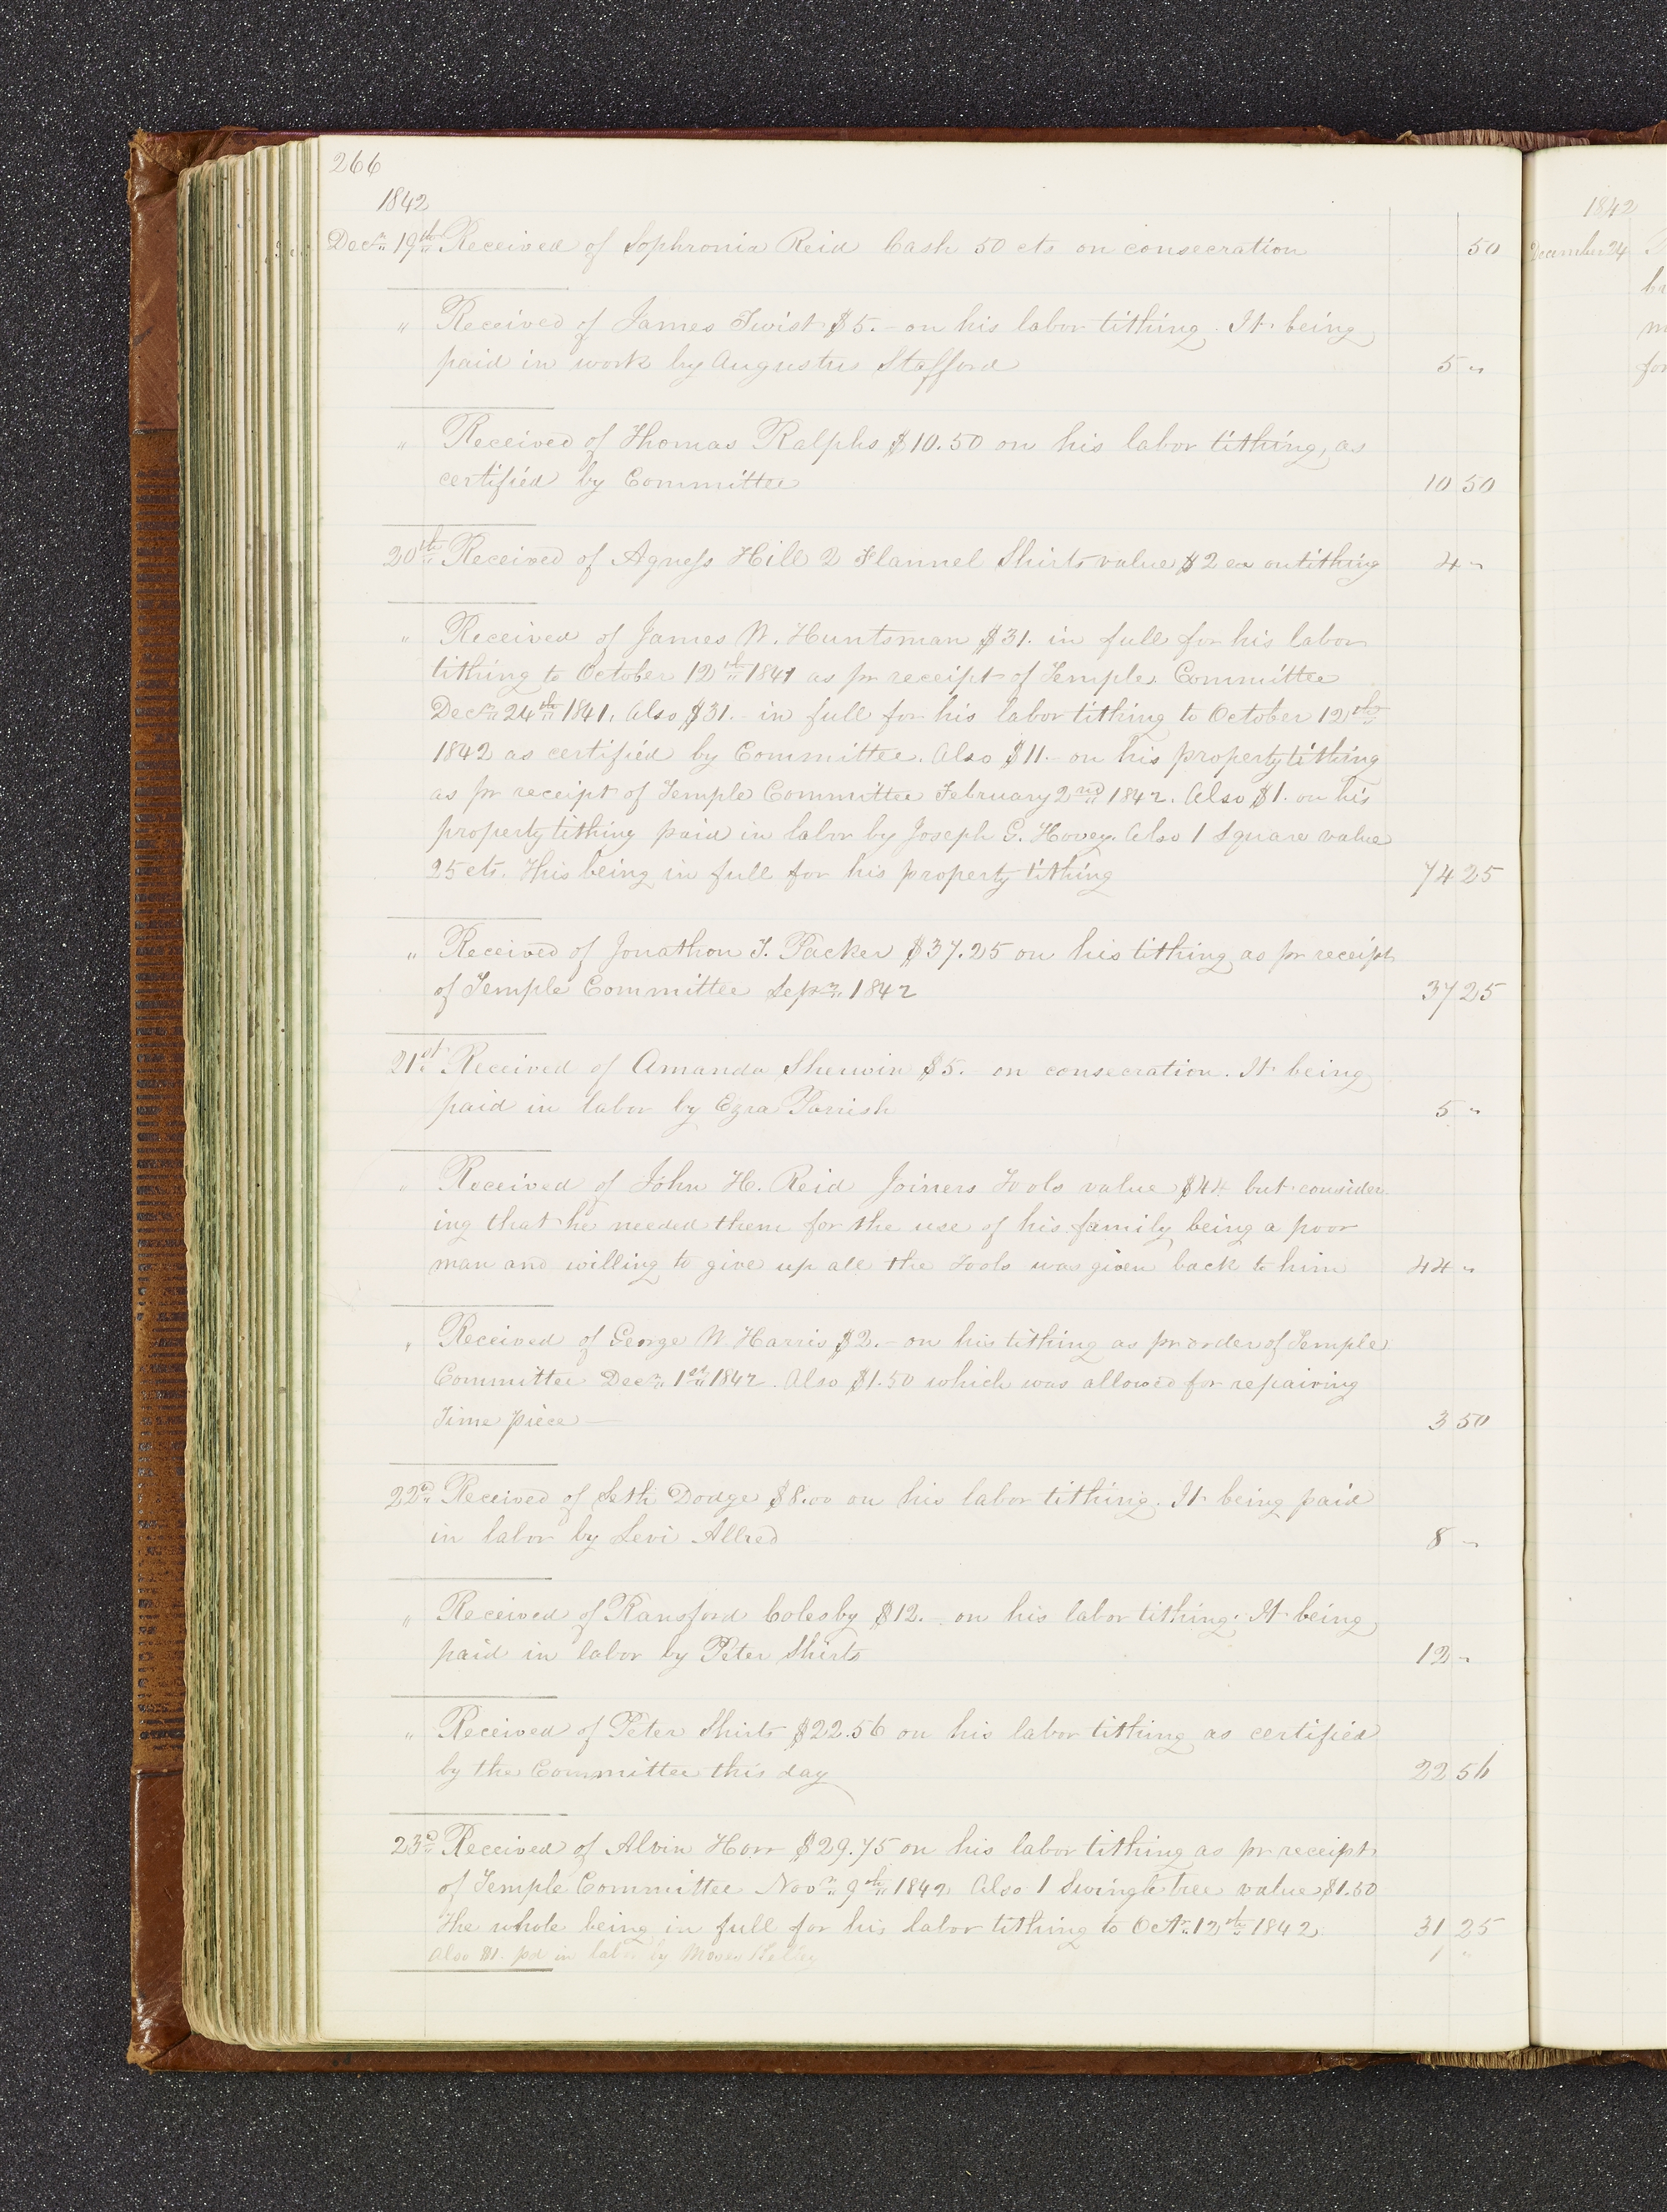 266
1842
Decr. 19th Received of Sophronia Reid Cash 50 cts on consecration 50
" Received of James Twist $5.- on his labor tithing. It being
paid in work by Augustus Stafford 5 "
" Received of Thomas Ralphs $10.50 on his labor tithing, as
certified by Committee 10 50
20th Received of Agness Hill 2 Flannel Shirts value $2 ea on tithing 4 "
" Received of James W. Huntsman $31. in full for his labor
tithing to October 12th 1841 as pr receipt of Temple Committee
Decr. 24th 1841. Also $31.- in full for his labor tithing to October 12th
1842 as certified by Committee. Also $11.- on his property tithing
as pr receipt of Temple Committee February 2nd 1842. Also $1. on his
property tithing paid in labor by Joseph G. Hovey. Also 1 Square value
25 cts. This being in full for his property tithing 74 25
" Received of Jonathon T. Packer $37.25 on his tithing as pr receipt
of Temple Committee Sepr. 1842 37 25
21st Received of Amanda Sherwin $5.- on consecration. It being
paid in labor by Ezra Parrish 5 "
" Received of John H. Reid Joiners Tools value $44 but consider-
ing that he needed them for the use of his family being a poor
man and willing to give up all the Tools was given back to him 44 "
" Received of George W. Harris $2.- on his tithing as pr order of Temple
Committee Decr. 1st 1842. Also $1.50 which was allowed for repairing
Time piece — 3 50
22d Received of Seth Dodge $8.00 on his labor tithing. It being paid
in labor by Levi Allred 8 "
" Received of Ransford Colesby $12.- on his labor tithing. It being
paid in labor by Peter Shirts 12 "
" Received of Peter Shirts $22.56 on his labor tithing as certified
by the Committee this day 22 56
23d Received of Alvin Horr $29.75 on his labor tithing as pr receipt
of Temple Committee Novr. 9th 1842 Also 1 Swingle tree value $1.50
The whole being in full for his labor tithing to Octr. 12th 1842. 31 25
Also $1. pd in labor by Moses Kelley 1 "
1842
December 24